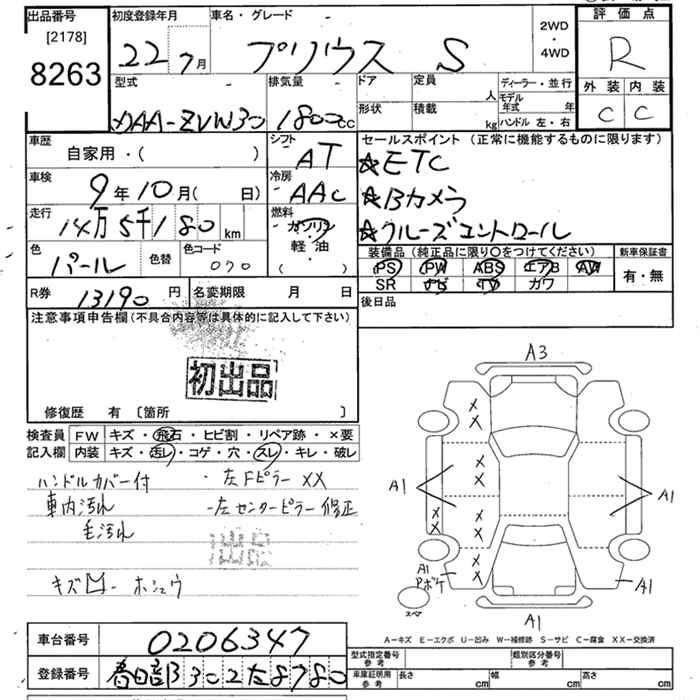 出品番号
[2178]
8263
初度登録年月
22 7月
車名・グレード
プリウス S
2WD
・
4WD
評価点
R
外装 内装
C C
型式
DAA-ZVW30
排気量
1800cc
ドア
形状
定員
人
積載
kg
ディーラー・並行
モデル年式 年
ハンドル 左・右
車歴
自家用・( )
シフト
AT
車検
9年10月( 日)
冷房
AAC
走行
14万5千180km
燃料
ガソリン
軽油
( ・ )
色
パール
色替
色コード
070
セールスポイント (正常に機能するものに限ります)
☆ETC
☆Bカメラ
☆クルーズコントロール
装備品 (純正品に限り○をつけてください)
PS PW ABS エアB AW
SR ナビ TV カワ
新車保証書
有・無
R券
13190円
名変期限 月 日
後日品
注意事項申告欄(不具合内容等は具体的に記入して下さい)
初出品
修復歴 有 〔箇所 〕
検査員
記入欄
FW キズ・飛石・ヒビ割・リペア跡・×要
内装 キズ・汚レ・コゲ・穴・スレ・キレ・破レ
ハンドルカバー付 ・左Fピラー XX
車内汚れ -左センターピラー修正
毛汚れ
出品
キズ凹ー ホシュウ
A3
A1
A1
A1
Pボケ
A1
A1
スペア
A-キズ E-エクボ U-凹み W-補修跡 S-サビ C-腐食 XX-交換済
車台番号
0206347
登録番号
春日部 302 た 8780
型式指定番号
参考
類別区分番号
参考
車庫証明用
参考
長さ cm
幅 cm
高さ cm